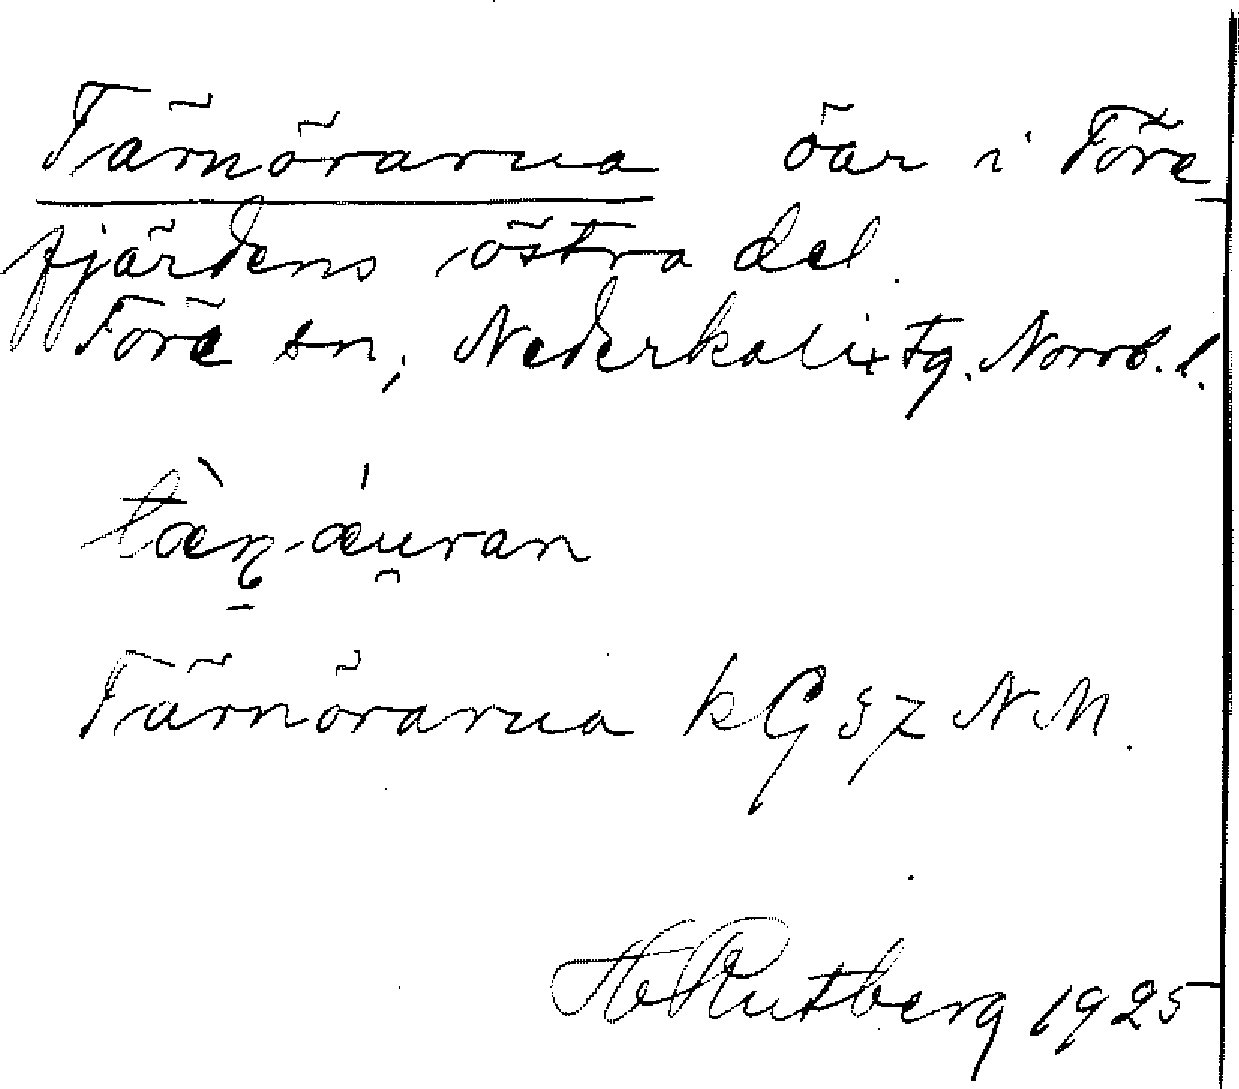 Tärnörarna öar i Töre
fjärdens östra del.
Töre sn, Nederkalix tg. Norrb. l.
tæ̀ṇ-ǽuran
Tärnörarna kG 57 NM.
H Rutberg 1925